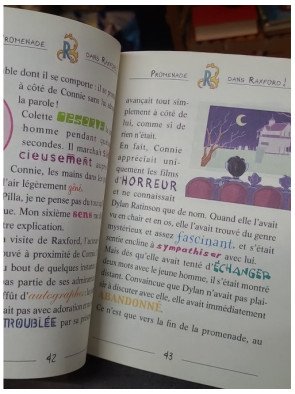 PROMENADE
DANS RAXFORD
ble dont il se comporte : Il
à côté de Connie sans lu
la parole !
Colette
homme pendant
secondes. Il marchait
cieusement
Connie, les mains dans
l'air légèrement gêné.
Pilla, je ne pense pas du tou
que. Mon sixième sens
tre explication.
visite de Raxford, l'ac
trouvé à proximité de Con
bout de quelques instan
pas partie de ses admira
ffût d'autographe
vait pas avec adoration e
TROUBLÉE par sa p
42
PROMENADE
DANS RAXFORD !
avançait tout sim-
plement à côté de
lui, comme si de
rien n'était.
En fait, Connie
appréciait uni-
quement les films
d'HORREUR
et ne connaissait
Dylan Rainson que de nom. Quand elle l'avait
vu en chair et en os, elle l'avait trouvé du genre
mystérieux et assez fascinant, et s'était
sentie encline à sympathiser avec lui.
Mais dès qu'elle avait tenté d'ÉCHANGER
deux mots avec le jeune homme, il s'était montré
distant. Convaincue que Dylan n'avait pas plai-
sir à discuter avec elle, elle avait immédiatement
ABANDONNÉ.
Ce n'est que vers la fin de la promenade, au
43